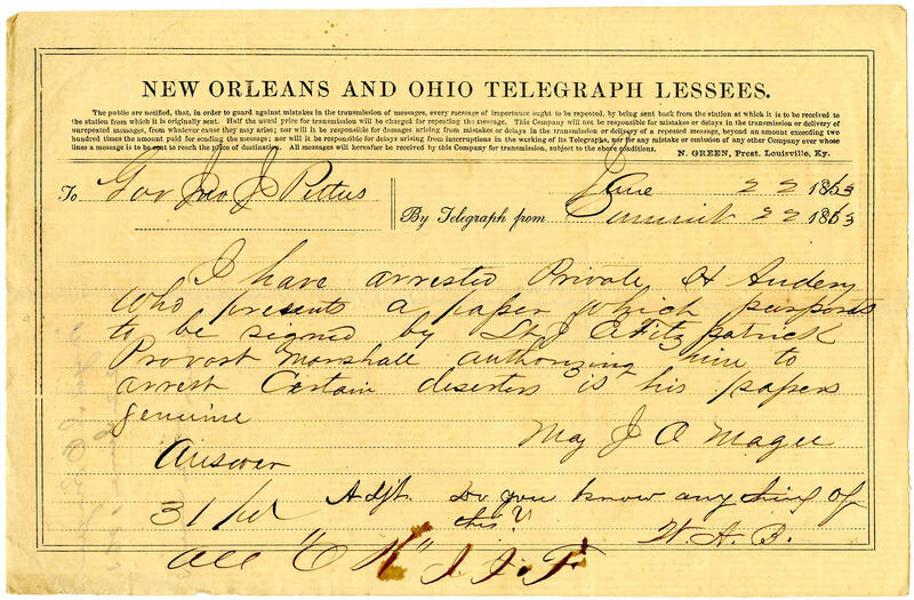 NEW ORLEANS AND OHIO TELEGRAPH LESSEES.
The public are notified, that, in order to guard against mistakes in the transmission of messages, every message of importance ought to be repeated, by being sent back from the station at which it is to be received to
the station from which it is originally sent. Half the usual price for transmission will be charged for repeating the message. This Company will not be responsible for mistakes or delays in the transmission or delivery of
unrepeated messages, from whatever cause they may arise; nor will it be responsible for damages arising from mistakes or delays in the transmission or delivery of a repeated message, beyond an amount exceeding two
hundred times the amount paid for sending the message; nor will it be responsible for delays arising from interruptions in the working of its Telegraphs, nor for any mistake or omission of any other Company over whose
lines a message is to be sent to reach the place of destination. All messages will hereafter be received by this Company for transmission, subject to the above conditions.
N. GREEN, Prest. Louisville, Ky.
To Gov Jno J Pettus
June 22 1863
By Telegraph from Summit 22 1863
I have arrested Private H
who presents a paper which purports
to be signed by Lt J A Fitzpatrick
Provost Marshall authorizing him to
arrest Certain deserters is his papers
genuine
Maj J A Magee
Answer
31
Adjt. Do you know any thing of
this?
W. A. B.
All "O K" J. J. F.